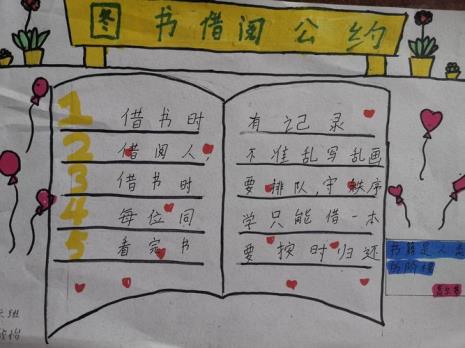 图书借阅公约
1 借书时有记录
2 借阅人,不准乱写乱画
3 借书时要排队,守秩序
4 每位同学只能借一本
5 看完书要按时归还
书籍是人类
的阶梯